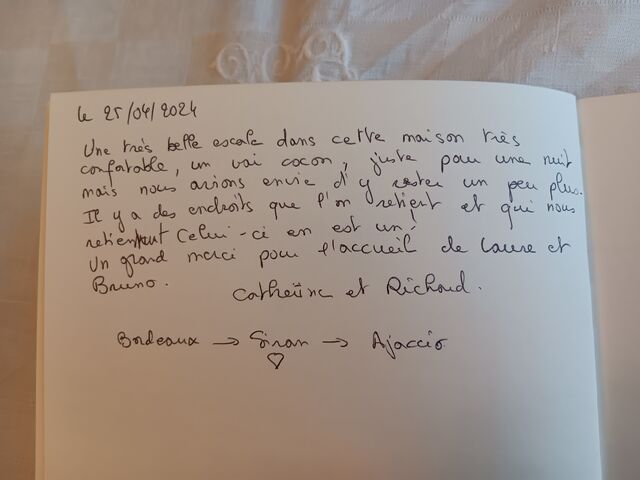 le 25/04/2024
Une très belle escale dans cette maison très
confortable, un vrai cocon, juste pour une nuit
mais nous avions envie d'y rester un peu plus.
Il y a des endroits que l'on retient et qui nous
retiennent Celui-ci en est un!
Un grand merci pour l'accueil de Laure et
Bruno.
Catherine et Richard.
Bordeaux → Siran → Ajaccio
♡